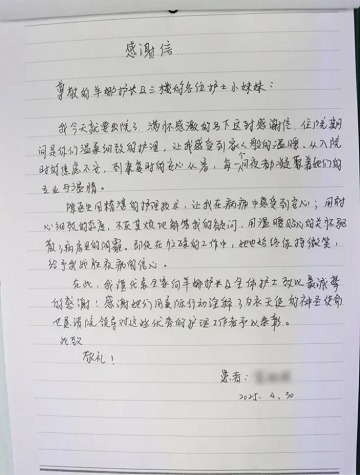 感谢信
尊敬的羊娜护长及三楼的各位护士小妹妹：
我今天就要出院了，满怀感激的写下这封感谢信，住院期
间是你们温柔细致的护理，让我感受到家人般的温暖，从入院
时的焦虑不安，到康复时的安心从容，每一个日夜都凝聚着她们的
专业与温情。
她们用精湛的护理技术，让我在病痛中感受到安心；用耐
心细致的态度，不厌其烦地解答我的疑问，用温暖贴心的关怀驱
散了病房里的阴霾。即使在忙碌的工作中，她也始终保持微笑，
给予我战胜疾病的信心。
在此，我谨代表全家向羊娜护长及全体护士致以最诚挚
的感谢！感谢她们用实际行动诠释了白衣天使的神圣使命
也恳请院领导对这些优秀的护理工作者予以表彰。
此致
敬礼！
患者：
2025. 4. 30